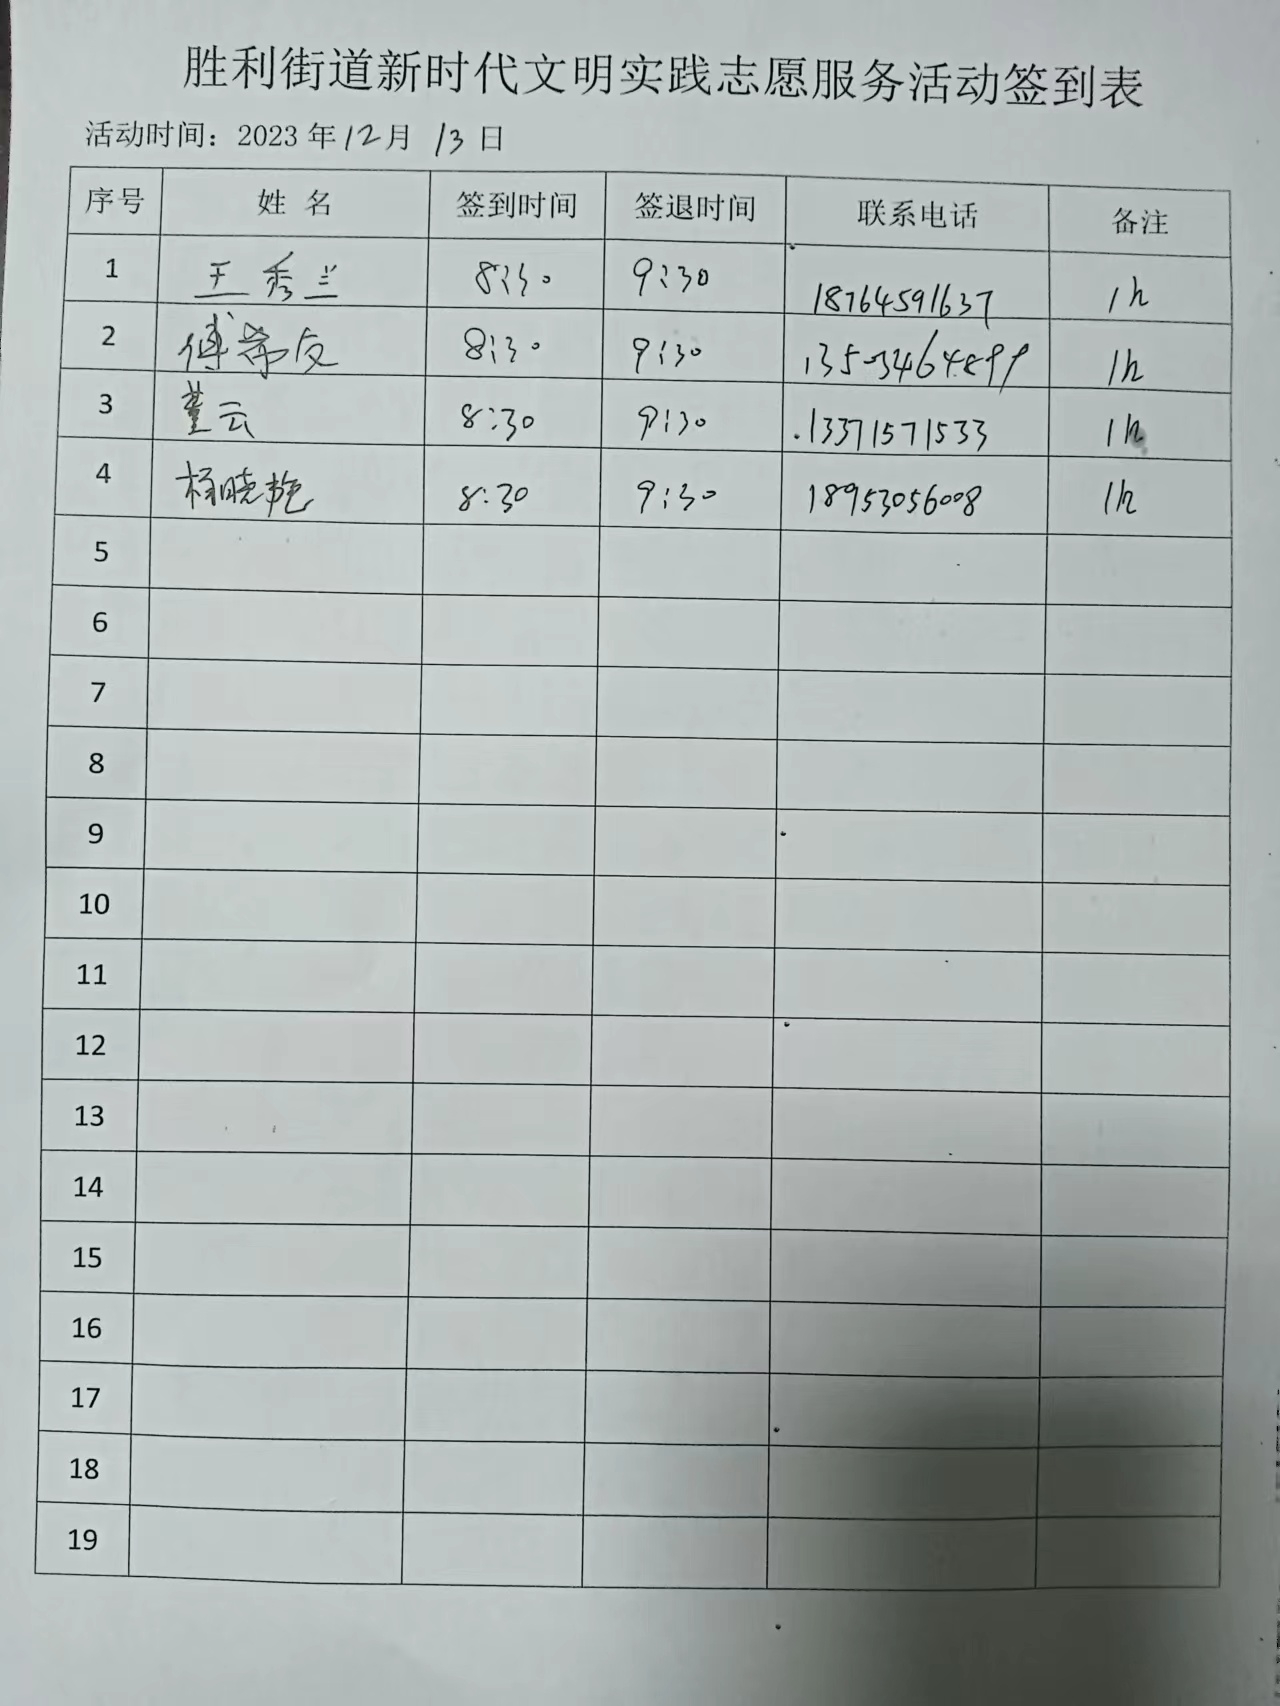 胜利街道新时代文明实践志愿服务活动签到表
活动时间：2023 年 12 月 13 日
序号 姓 名 签到时间 签退时间 联系电话 备注
1 王秀兰 8:30 9:30 18764591637 1h
2 8:30 9:30 1h
3 董云 8:30 9:30 13371571533 1h
4 杨晓艳 8:30 9:30 18953056008 1h
5
6
7
8
9
10
11
12
13
14
15
16
17
18
19